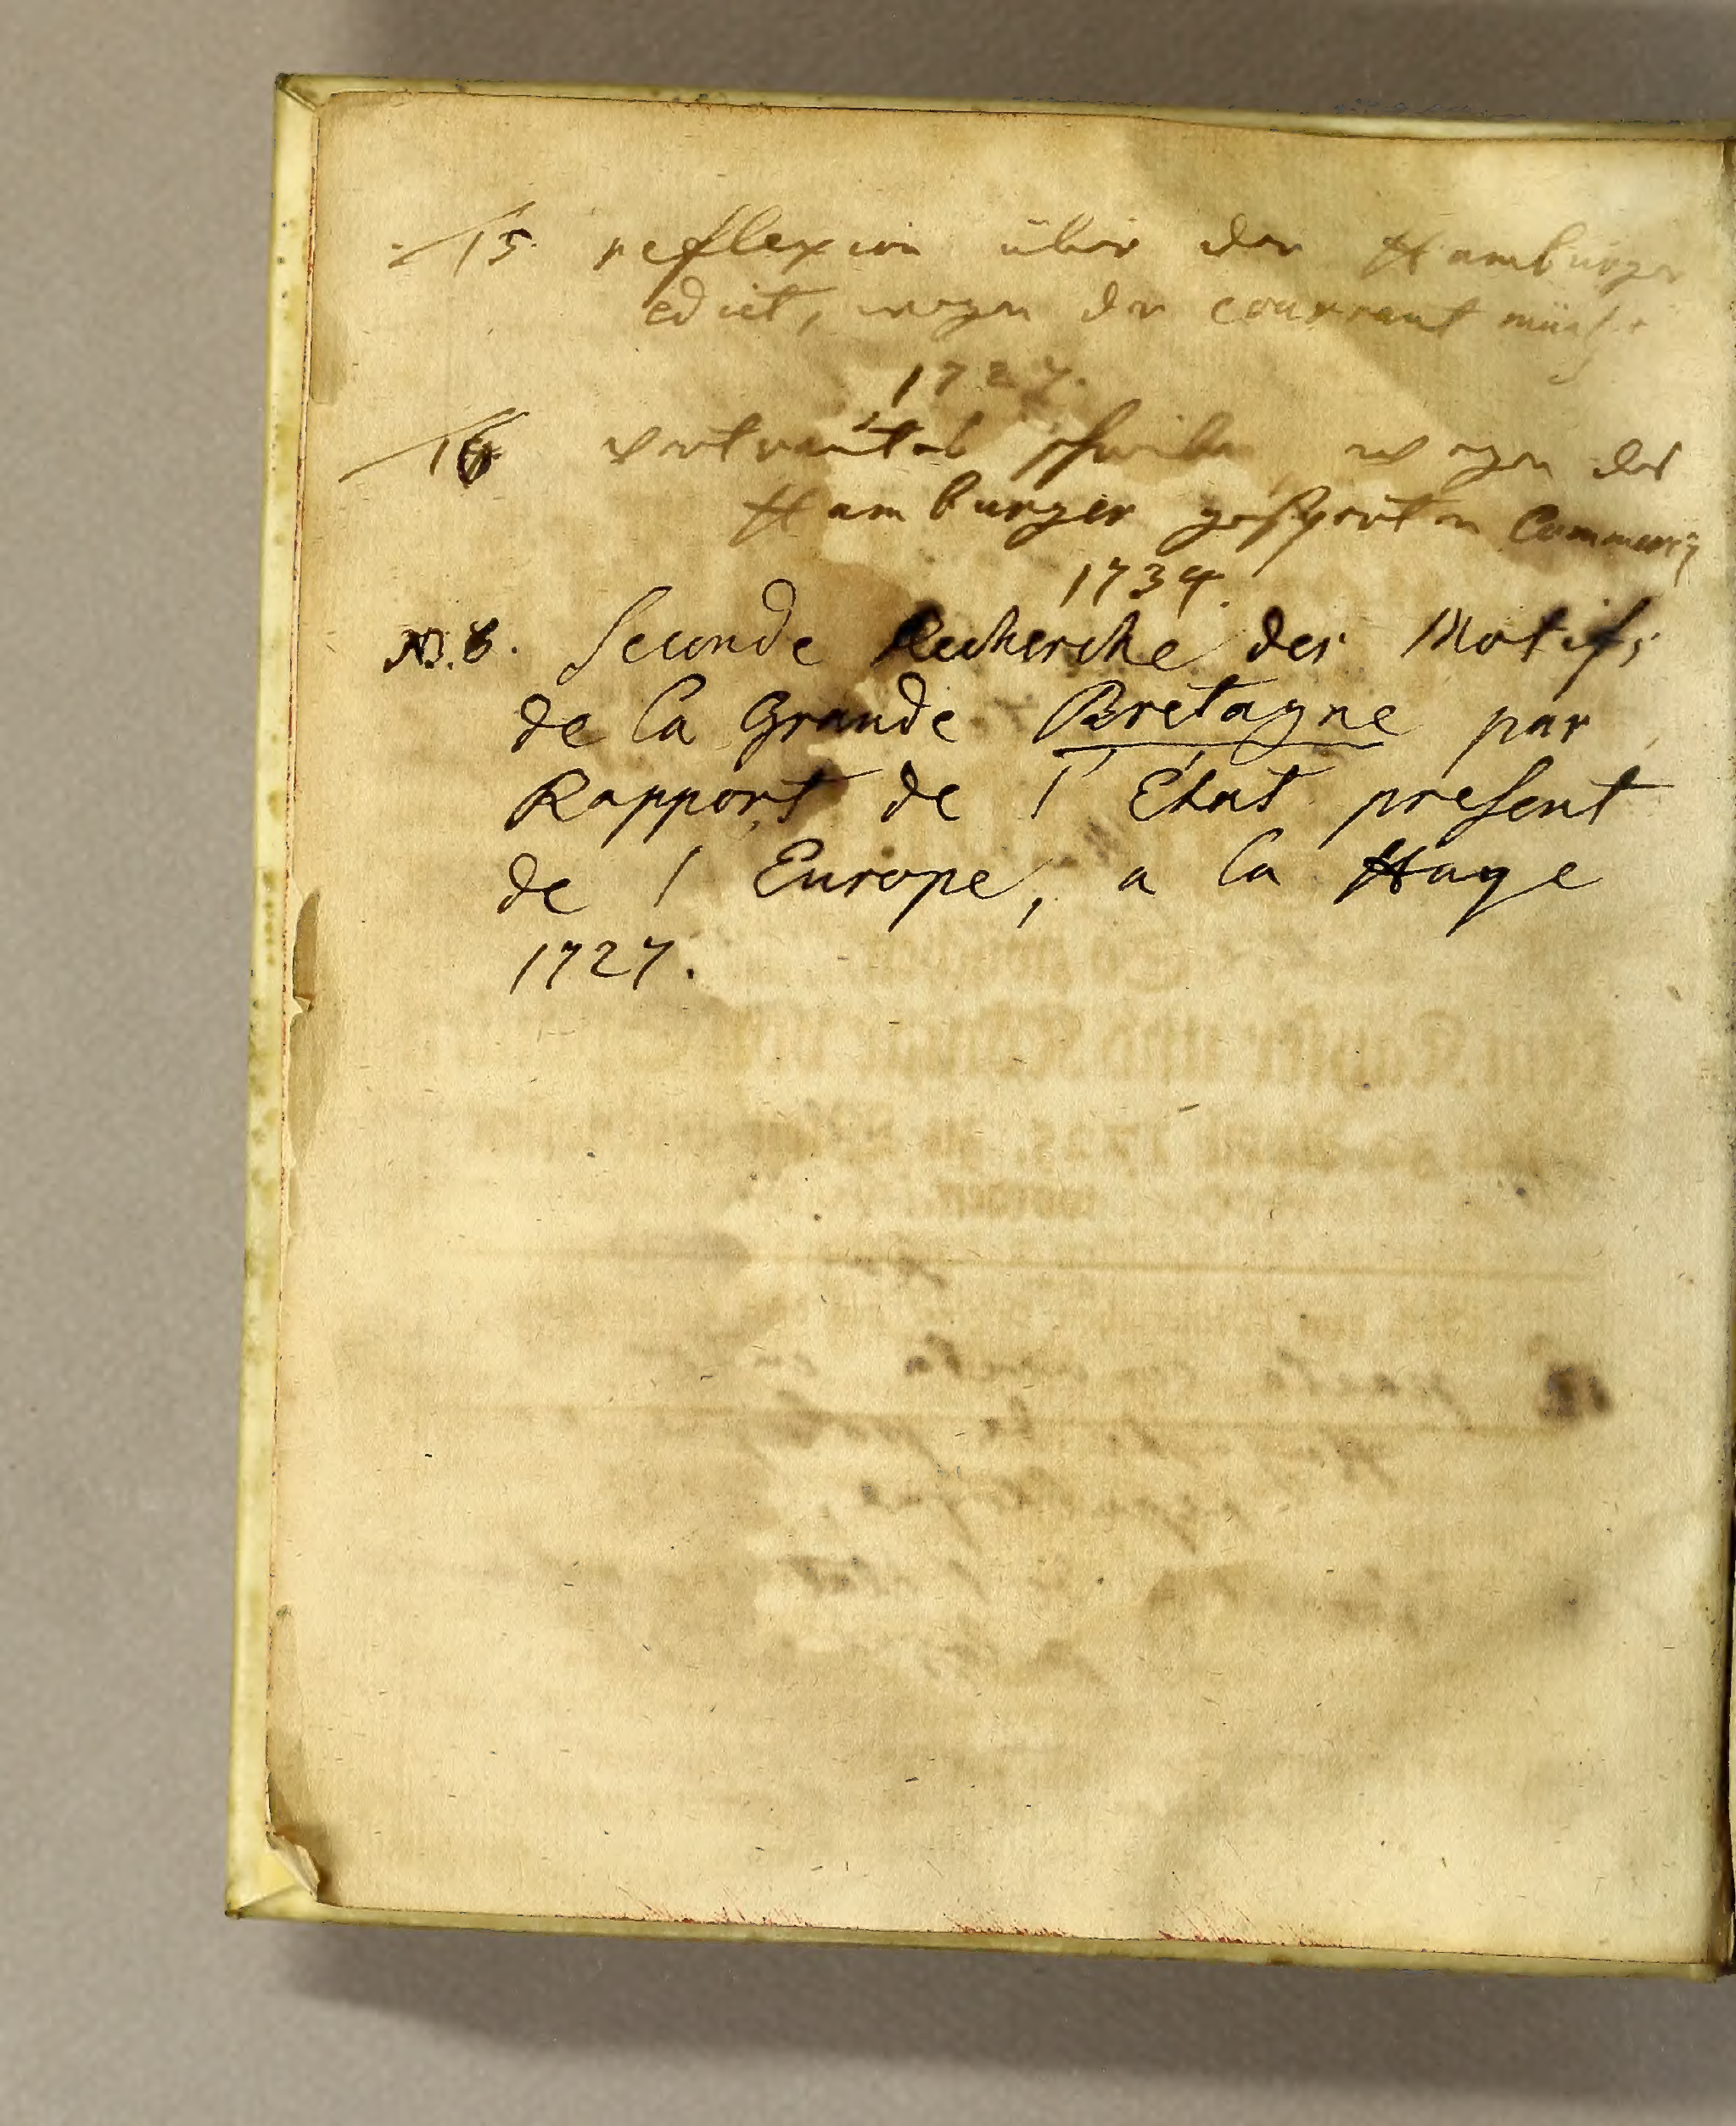 15. reflexion über der Hamburger
edict, wegen der courrant müntze
1727.
16 vertrautes schreiben, wegen des
Hamburger gesperten Commercÿ
1734.
N.B. Seconde Recherche des Motifs
de la Grande Bretagne par
Rapport de l' Etat present
de l Europe, a la Haye
1727.